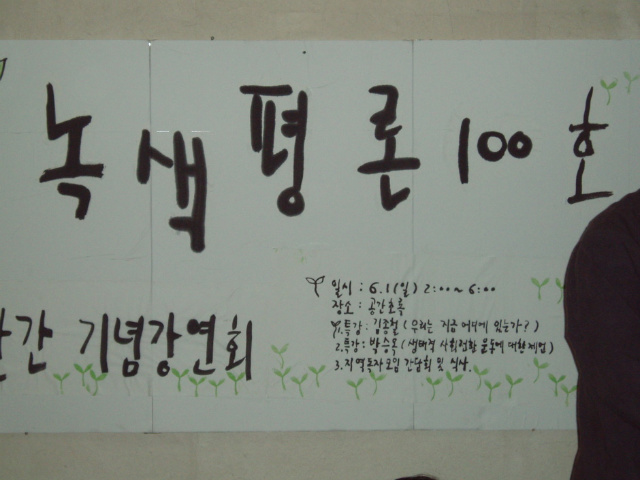 녹색평론 100호
간 기념강연회
일시 : 6.1(일) 2:00~6:00
장소 : 공간초록
1.특강 : 김종철 (우리는 지금 어디에 있는가?)
2.특강 : 박승옥 (생태적 사회전환 운동에 대한 제언)
3.지역독자모임 간담회 및 식사.